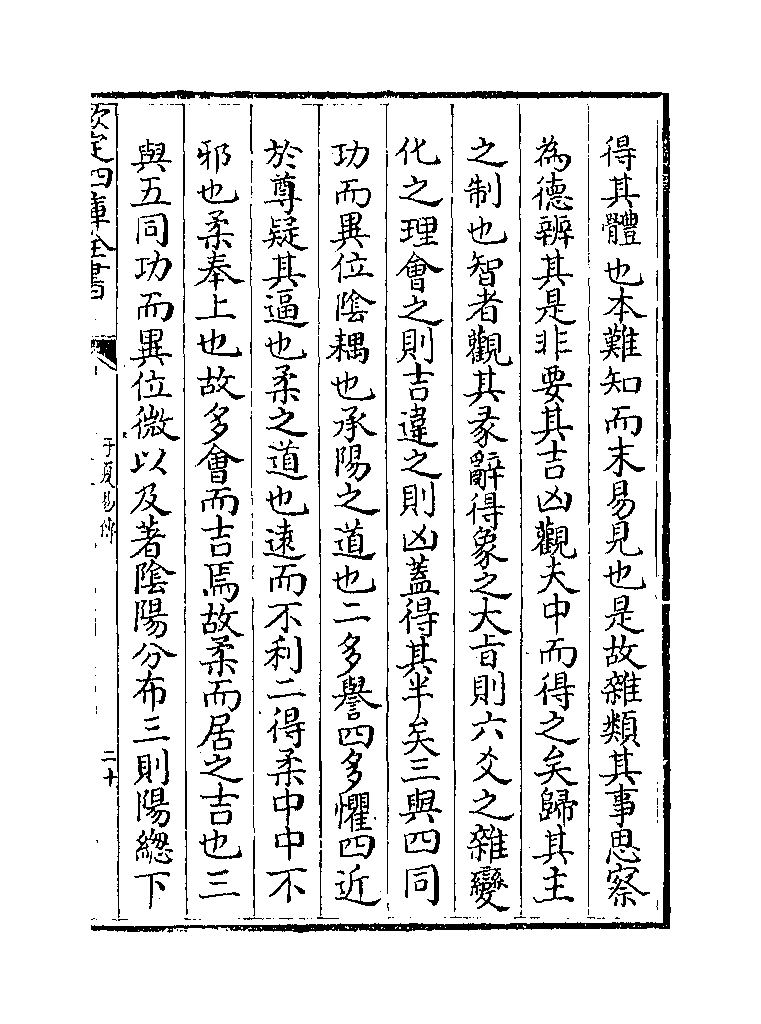 得其體也本難知而末易見也是故雜類其事思察
為德辨其是非要其吉凶觀夫中而得之矣歸其主
之制也智者觀其彖辭得象之大旨則六爻之雜變
化之理會之則吉違之則凶蓋得其半矣三與四同
功而異位陰耦也承陽之道也二多譽四多懼四近
於尊疑其逼也柔之道也逺而不利二得柔中中不
邪也柔奉上也故多會而吉焉故柔而居之吉也三
與五同功而異位微以及著陰陽分布三則陽總下
欽定四庫全書
子夏易傳
二十